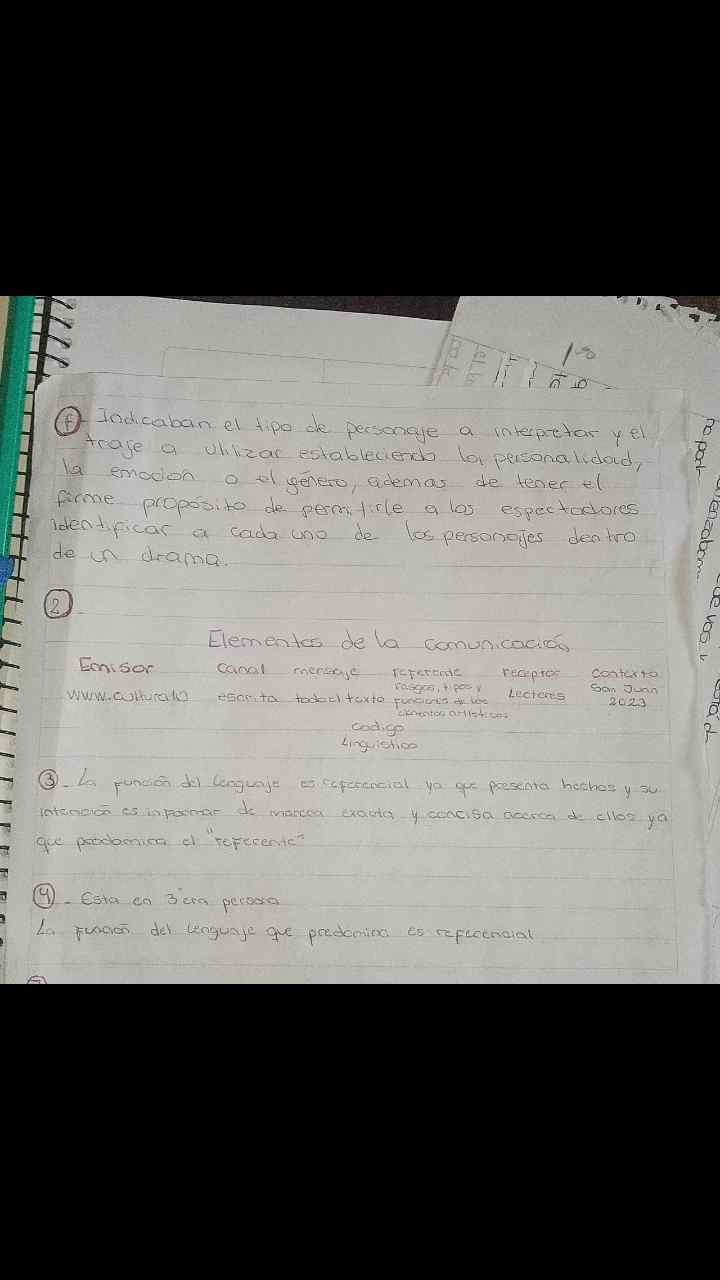 f- Indicaban el tipo de personaje a interpretar y el
traje a utilizar estableciendo la personalidad,
la emocion o el género, ademas de tener el
firme propósito de permitirle a los espectadores
identificar a cada uno de los personajes dentro
de un drama.
2-
Elementos de la comunicación
Emisor canal mensaje referente receptor contexto
www.cultura10 escrita todo el texto rasgos, tipos y funciones de los elementos artisticos Lectores San Juan 2023
codigo
Linguistico
3-. La función del lenguaje es referencial ya que presenta hechos y su
intención es informar de manera exacta y concisa acerca de ellos ya
que predomina el "referente"
4-. Esta en 3era persona
La función del lenguaje que predomina es referencial